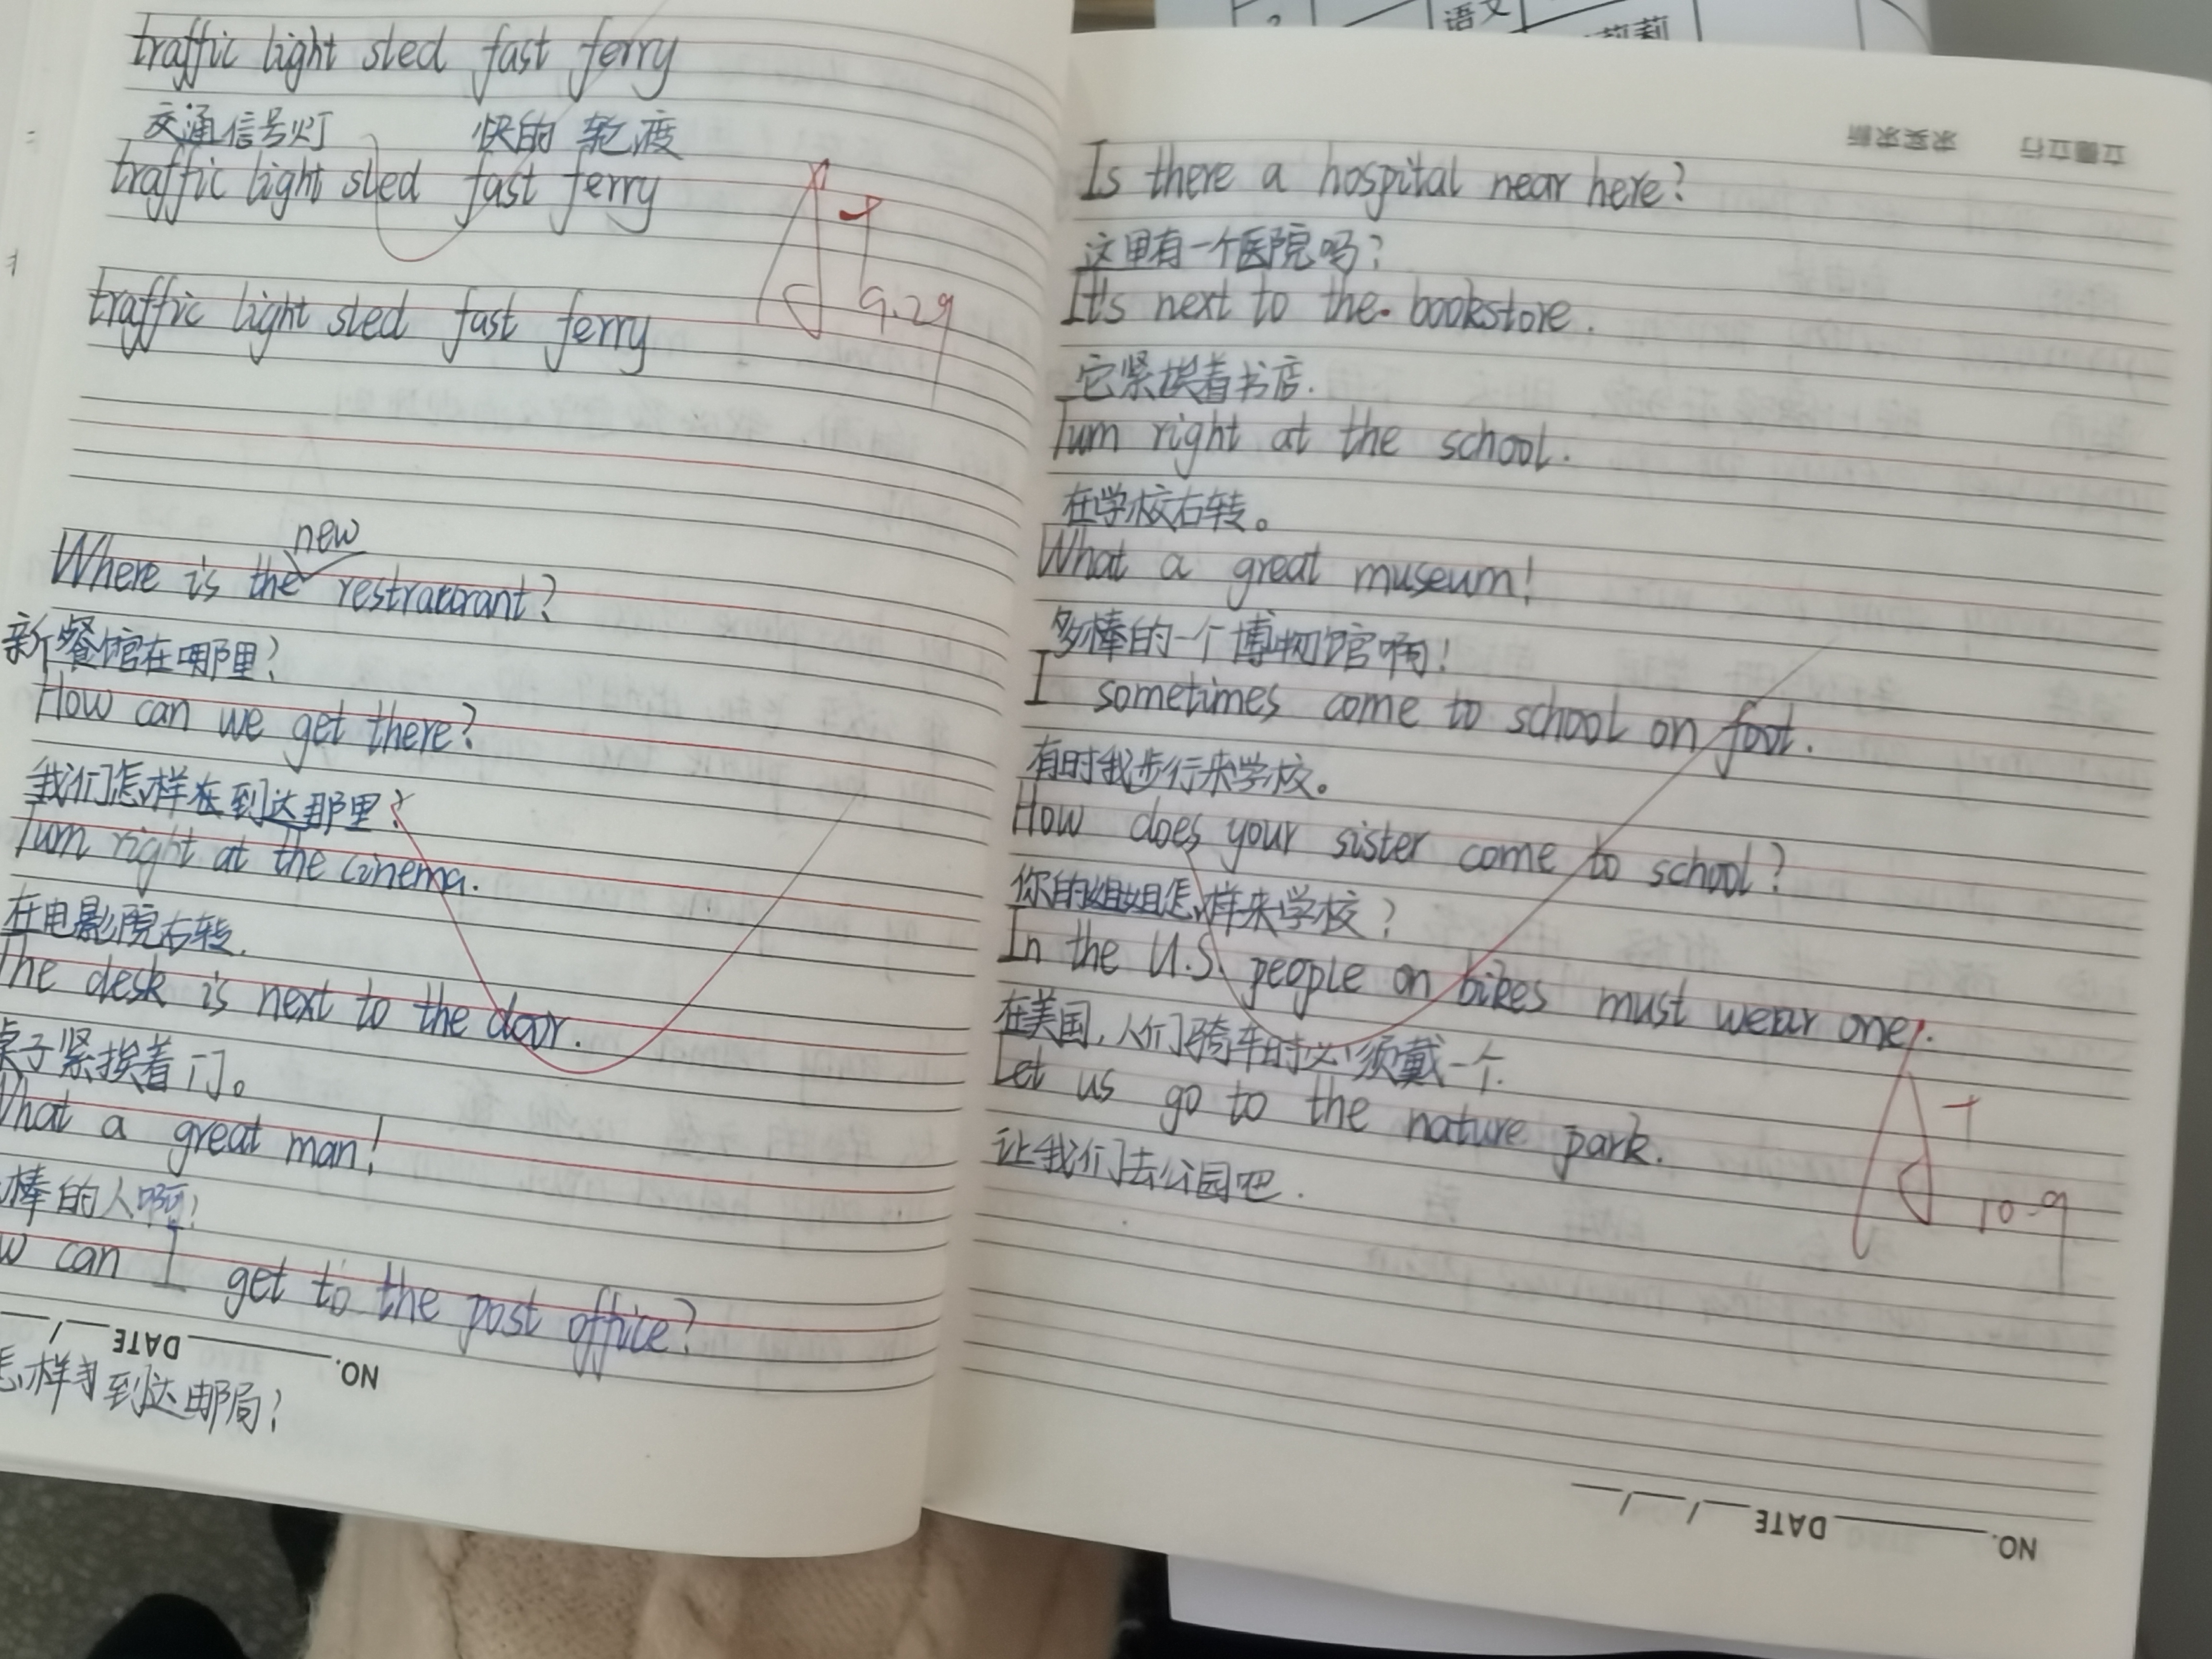 traffic light sled fast ferry
交通信号灯 快的 轮渡
traffic light sled fast ferry
A+
9.29
traffic light sled fast ferry
new
Where is the restraurant?
新餐馆在哪里?
How can we get there?
我们怎样在到达那里?
Turn right at the cinema.
在电影院右转.
The desk is next to the door.
桌子紧挨着门。
What a great man!
棒的人啊!
can I get to the post office?
NO. DATE / 
怎样 到达邮局?
语文
莉莉
立德立行 求实求新
Is there a hospital near here?
这里有一个医院吗?
It's next to the bookstore.
它紧挨着书店.
Turn right at the school.
在学校右转。
What a great museum!
多棒的一个博物馆啊!
I sometimes come to school on foot.
有时我步行来学校。
How does your sister come to school?
你的姐姐怎样来学校?
In the U.S. people on bikes must wear one.
在美国,人们骑车时必须戴一个.
Let us go to the nature park.
让我们去公园吧.
A+
10.9
NO. DATE / /